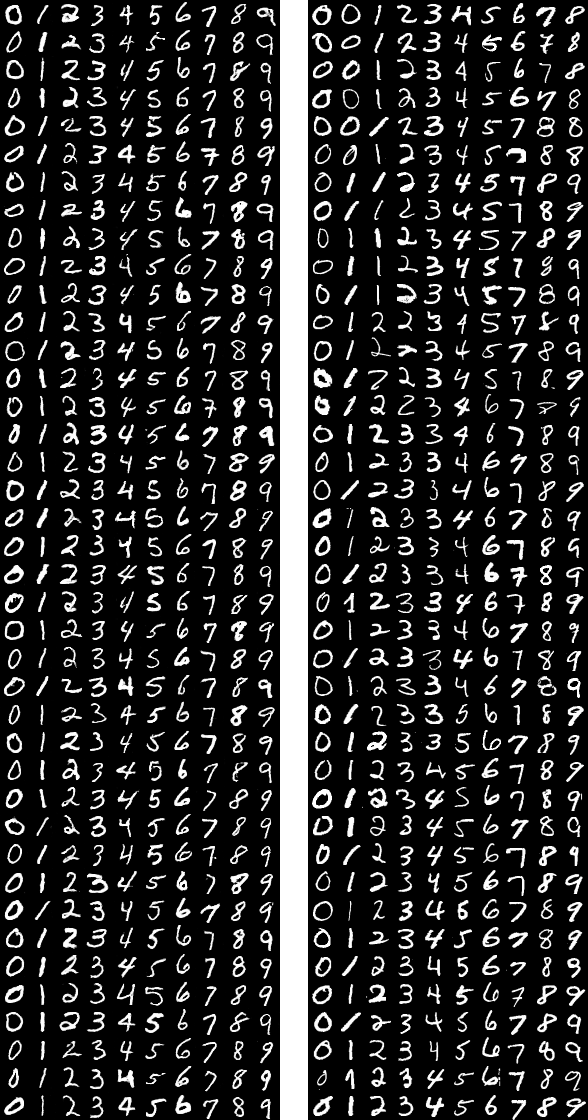 0 1 2 3 4 5 6 7 8 9
0 1 2 3 4 5 6 7 8 9
0 1 2 3 4 5 6 7 8 9
0 1 2 3 4 5 6 7 8 9
0 1 2 3 4 5 6 7 8 9
0 1 2 3 4 5 6 7 8 9
0 1 2 3 4 5 6 7 8 9
0 1 2 3 4 5 6 7 8 9
0 1 2 3 4 5 6 7 8 9
0 1 2 3 4 5 6 7 8 9
0 1 2 3 4 5 6 7 8 9
0 1 2 3 4 5 6 7 8 9
0 1 2 3 4 5 6 7 8 9
0 1 2 3 4 5 6 7 8 9
0 1 2 3 4 5 6 7 8 9
0 1 2 3 4 5 6 7 8 9
0 1 2 3 4 5 6 7 8 9
0 1 2 3 4 5 6 7 8 9
0 1 2 3 4 5 6 7 8 9
0 1 2 3 4 5 6 7 8 9
0 1 2 3 4 5 6 7 8 9
0 1 2 3 4 5 6 7 8 9
0 1 2 3 4 5 6 7 8 9
0 1 2 3 4 5 6 7 8 9
0 1 2 3 4 5 6 7 8 9
0 1 2 3 4 5 6 7 8 9
0 1 2 3 4 5 6 7 8 9
0 1 2 3 4 5 6 7 8 9
0 1 2 3 4 5 6 7 8 9
0 1 2 3 4 5 6 7 8 9
0 1 2 3 4 5 6 7 8 9
0 1 2 3 4 5 6 7 8 9
0 1 2 3 4 5 6 7 8 9
0 1 2 3 4 5 6 7 8 9
0 1 2 3 4 5 6 7 8 9
0 1 2 3 4 5 6 7 8 9
0 1 2 3 4 5 6 7 8 9
0 1 2 3 4 5 6 7 8 9
0 1 2 3 4 5 6 7 8 9
0 1 2 3 4 5 6 7 8 9
0 0 1 2 3 4 5 6 7 8
0 0 1 2 3 4 5 6 7 8
0 0 1 2 3 4 5 6 7 8
0 0 1 2 3 4 5 6 7 8
0 0 1 2 3 4 5 7 8 8
0 0 1 2 3 4 5 7 8 8
0 1 1 2 3 4 5 7 8 9
0 1 1 2 3 4 5 7 8 9
0 1 1 2 3 4 5 7 8 9
0 1 1 2 3 4 5 7 8 9
0 1 1 2 3 4 5 7 8 9
0 1 2 2 3 4 5 7 8 9
0 1 2 2 3 4 5 7 8 9
0 1 2 2 3 4 5 7 8 9
0 1 2 2 3 4 6 7 8 9
0 1 2 3 3 4 6 7 8 9
0 1 2 3 3 4 6 7 8 9
0 1 2 3 3 4 6 7 8 9
0 1 2 3 3 4 6 7 8 9
0 1 2 3 3 4 6 7 8 9
0 1 2 3 3 4 6 7 8 9
0 1 2 3 3 4 6 7 8 9
0 1 2 3 3 4 6 7 8 9
0 1 2 3 3 4 6 7 8 9
0 1 2 3 3 4 6 7 8 9
0 1 2 3 3 5 6 7 8 9
0 1 2 3 3 5 6 7 8 9
0 1 2 3 4 5 6 7 8 9
0 1 2 3 4 5 6 7 8 9
0 1 2 3 4 5 6 7 8 0
0 1 2 3 4 5 6 7 8 9
0 1 2 3 4 5 6 7 8 9
0 1 2 3 4 5 6 7 8 9
0 1 2 3 4 5 6 7 8 9
0 1 2 3 4 5 6 7 8 9
0 1 2 3 4 5 6 7 8 9
0 1 2 3 4 5 6 7 8 9
0 1 2 3 4 5 6 7 8 9
0 1 2 3 4 5 6 7 8 9
0 1 2 3 4 5 6 7 8 9